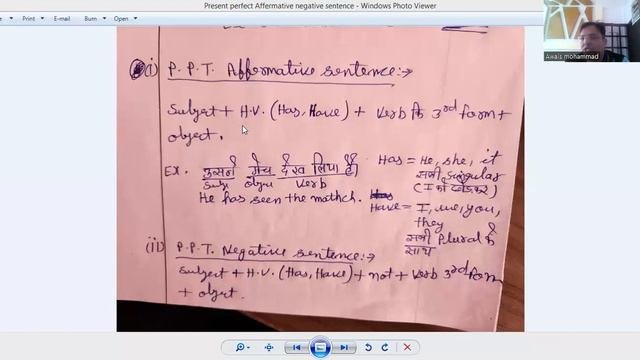 Present perfect Affermative negative sentence - Windows Photo Viewer
Print Burn Open
Awais mohammad
(i) P.P.T. Affermative sentence:→
Subject + H.V. (Has, Have) + Verb कि 3rd form +
object.
Ex. उसने मैच देख लिया है।
Subj object verb
He has seen the mathch.
Has = He, she, it
सभी singular
(I को छोड़कर)
Have = I, we, you,
they
सभी Plural के
साथ
(ii) P.P.T. Negative sentence:→
Subject + H.V. (Has, Have) + not + Verb 3rd form
+ object.